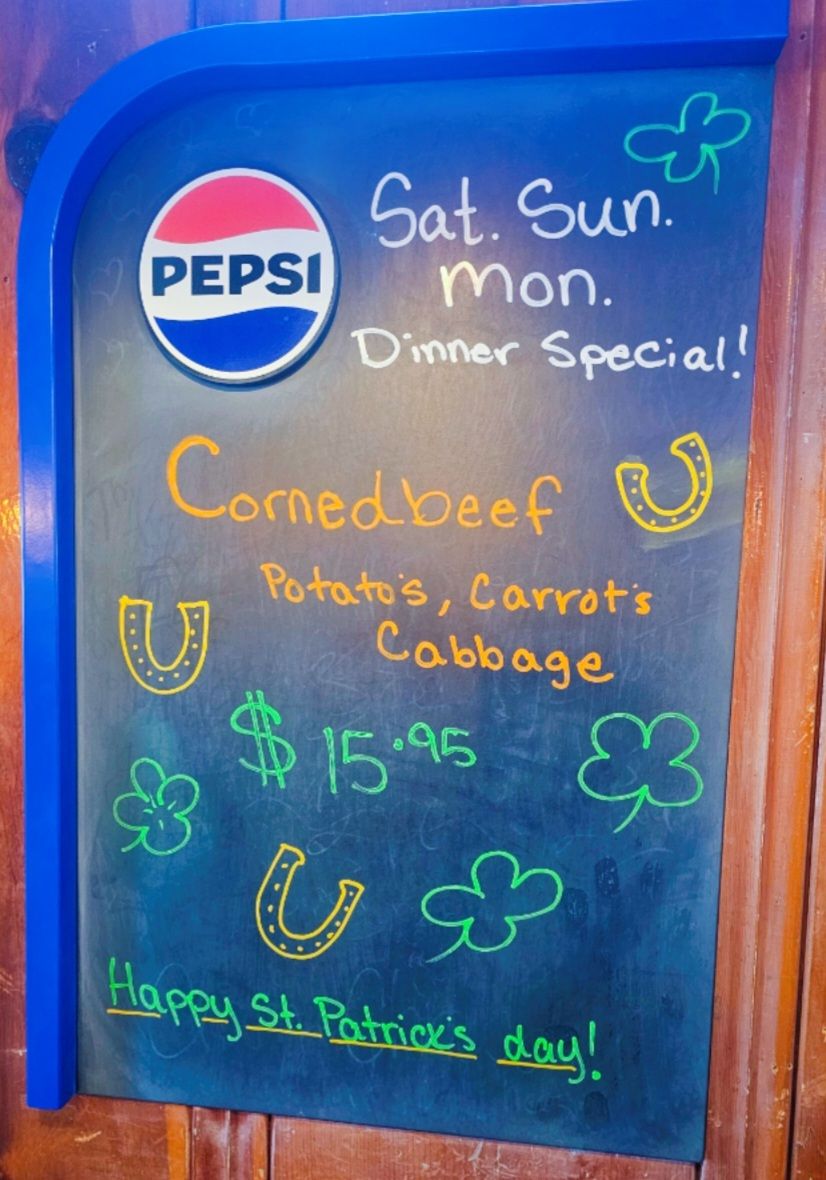 PEPSI
Sat. Sun.
Mon.
Dinner Special!
Cornedbeef
Potato's, Carrot's
Cabbage
$ 15.95
Happy St. Patrick's day!